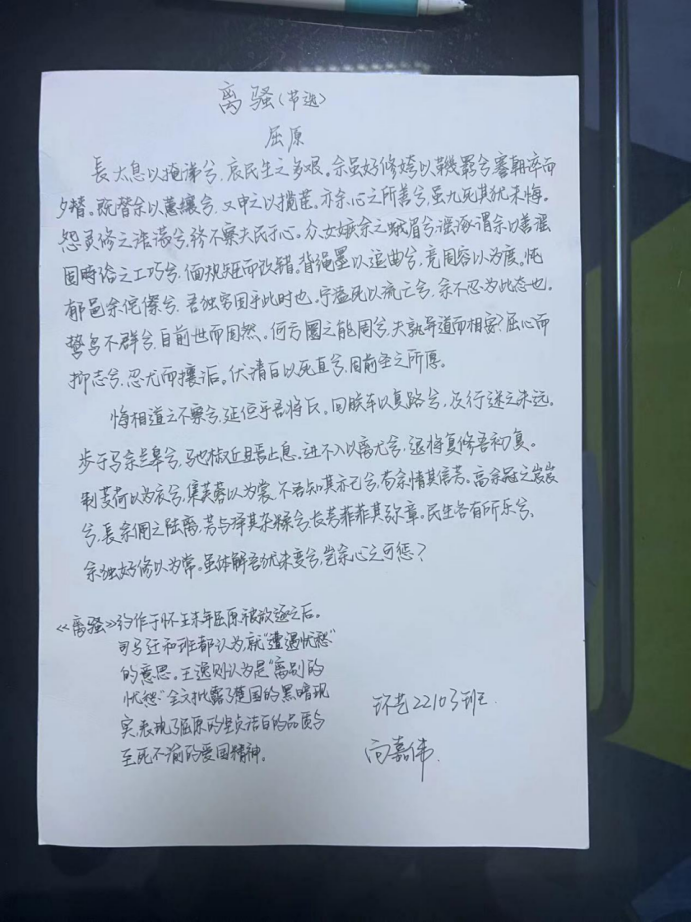 离骚(节选)
屈原
長太息以掩涕兮,哀民生之多艰。余虽好修姱以鞿羁兮,謇朝谇而
夕替。既替余以蕙纕兮,又申之以揽茝。亦余心之所善兮,虽九死其犹未悔。
怨灵修之浩荡兮,终不察夫民心。众女嫉余之蛾眉兮,谣诼谓余以善淫
固時俗之工巧兮,偭规矩而改错。背绳墨以追曲兮,竞周容以为度。忳
郁邑余侘傺兮,吾独穷困乎此时也。宁溘死以流亡兮,余不忍为此态也。
鸷鸟不群兮,自前世而固然。何方圜之能周兮,夫孰异道而相安?屈心而
抑志兮,忍尤而攘诟。伏清白以死直兮,固前圣之所厚。
悔相道之不察兮,延伫乎吾将反。回朕车以复路兮,及行迷之未远。
步于马余兰皋兮,驰椒丘且焉止息。进不入以离尤兮,退将复修吾初复。
制芰荷以为衣兮,集芙蓉以为裳。不吾知其亦已兮,苟余情其信芳。高余冠之岌岌
兮,長余佩之陆离,芳与泽其杂糅兮,长芳菲菲其弥章。民生各有所乐兮,
余独好修以为常。虽体解吾犹未变兮,岂余心之可惩?
《离骚》约作于怀王末年屈原被放逐之后。
司马迁和班都认为,就"遭遇忧愁"
的意思。王逸则认为是"离别的
忧愁"全文批露了楚国的黑暗现
实,表现了屈原的坚贞洁白的品质与
至死不渝的爱国精神。
环艺22103班
向嘉伟